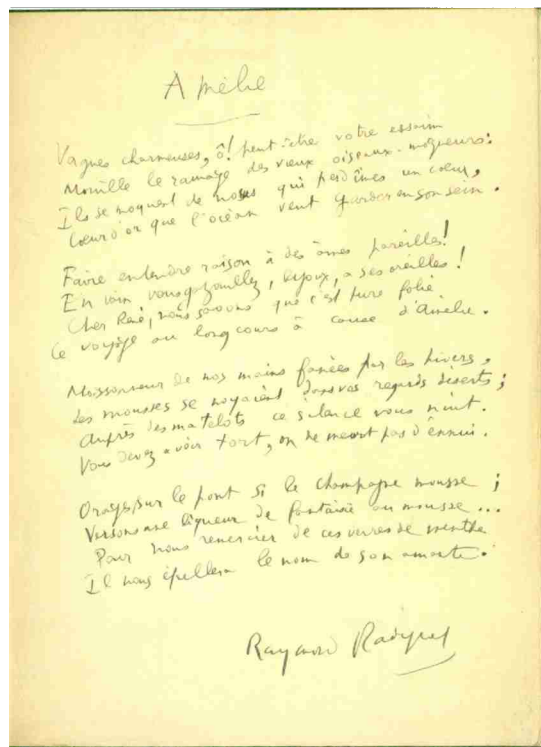 Amélie
Vagues charmeuses, ô! peut-être votre essaim
Mouille le ramage des vieux oiseaux-moqueurs:
Ils se moquent de nous qui perdîmes un cœur,
Cœur d'or que l'océan veut garder en son sein.
Faire entendre raison à des âmes pareilles!
En vain vous gazouillez, bijoux, à ses oreilles!
Cher René, nous savons que c'est pure folie
Ce voyage au long cours à cause d'Amélie.
Moissonneur de nos mains fanées par les hivers,
Les mousses se noyaient dans vos regards déserts;
Auprès des matelots ce silence vous nuit.
Vous devez avoir tort, on ne meurt pas d'ennui.
Orages, sur le pont si le champagne mousse;
Versons une liqueur de fantaisie au mousse...
Pour nous remercier de ces verres de menthe
Il nous épellera le nom de son amante.
Raymond Radiguet